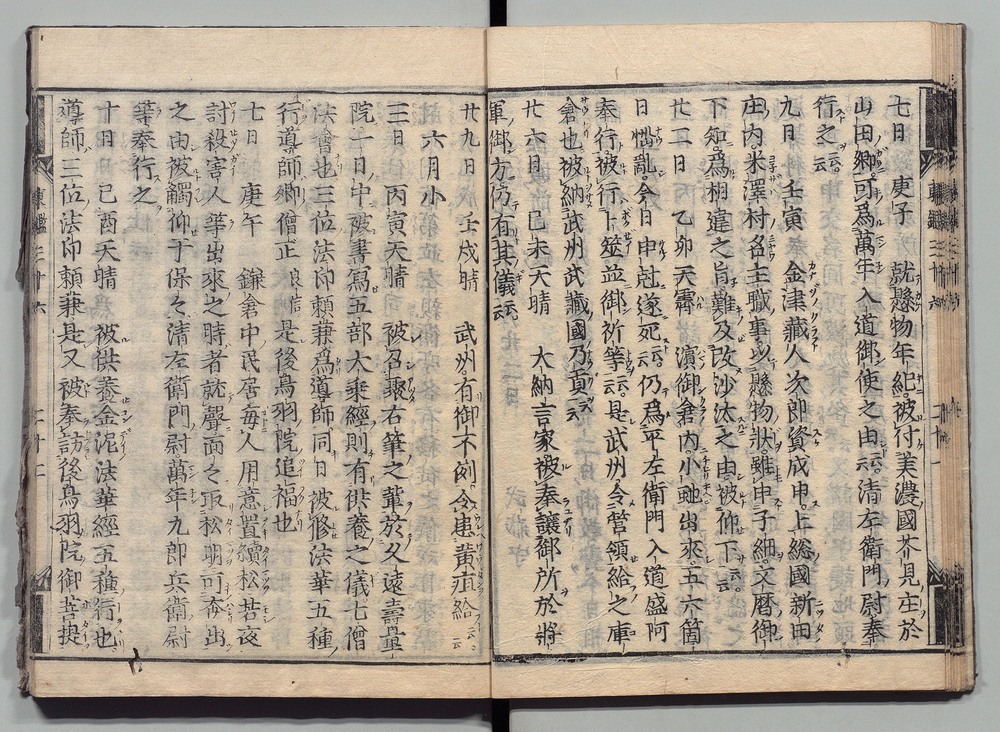 七日　庚子　就懸物年紀被付美濃國芥見庄於
山田郷可為萬年入道御使之由云云清左衛門尉奉
行之云云
九日　壬寅　金津藏人次郎資成申上総國新田
庄内米澤村名主職事以懸物狀雖申子細文暦御
下知為相違之旨難及改沙汰之由被仰下云云
廿二日　乙卯天霽　濱御倉内小虵出來五六箇
日惱亂今日申尅遂死云云仍為平左衛門入道盛阿
奉行被行卜筮並御祈等云云是武州令管領給之庫
倉也被納武州武藏國乃貢云云
廿六日　己未天晴　大納言家被奉讓御所於將
軍御方仍有其儀云云
廿九日　壬戌晴　武州有御不例令患黄疸給云云
六月小
三日　丙寅天晴　被召聚右筆之輩於久遠壽量
院一日中被書寫五部大乗經則有供養之儀七僧
法會也三位法印頼兼為導師同日被修法華五種
行導師卿僧正良信是後鳥羽院追福也
七日　庚午　鎌倉中民居毎人用意置續松若夜
討殺害人等出來之時者就聲面々取松明可奔出
之由被觸仰于保々清左衛門尉萬年九郎兵衛尉
等奉行之
十日　己酉天晴　被供養金泥法華經五種行也
導師三位法印頼兼是又被奉訪後鳥羽院御菩提
東鑑三十六
二十一
東鑑三十六
二十二